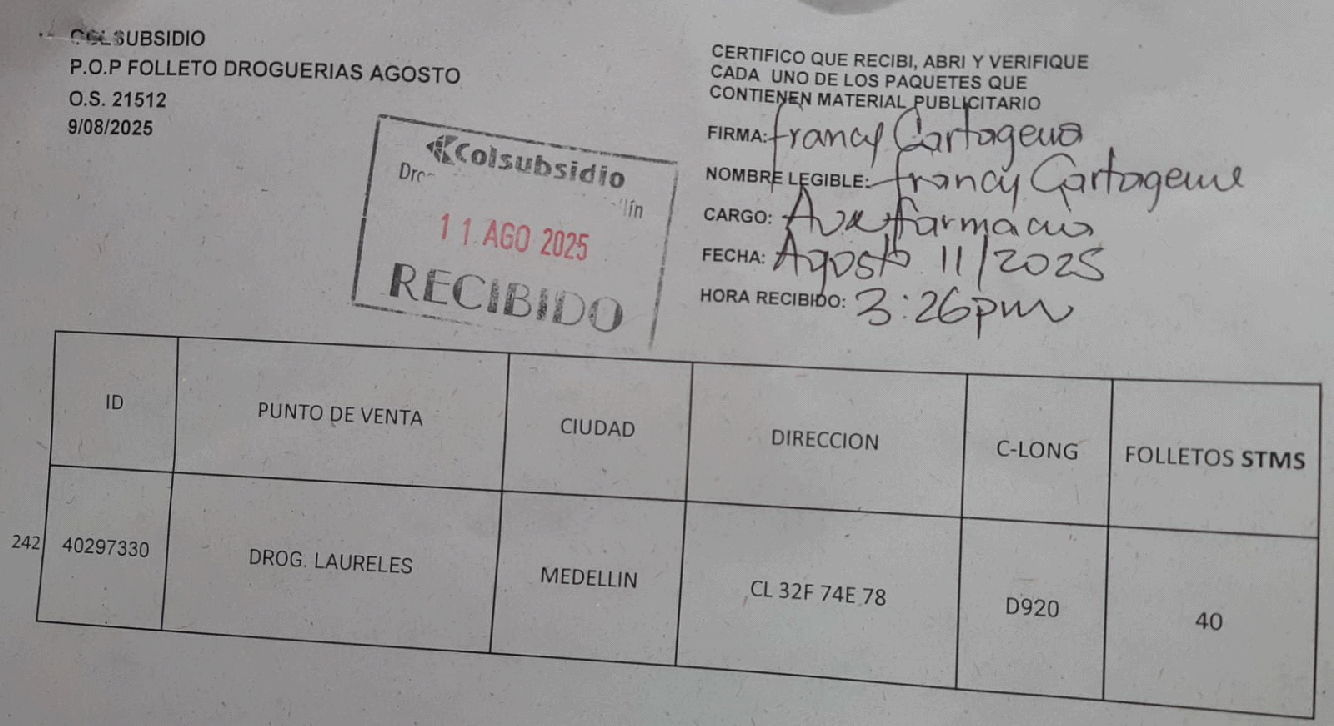 COLSUBSIDIO
P.O.P FOLLETO DROGUERIAS AGOSTO
O.S. 21512
9/08/2025
Colsubsidio
11 AGO 2025
RECIBIDO
CERTIFICO QUE RECIBI, ABRI Y VERIFIQUE
CADA UNO DE LOS PAQUETES QUE
CONTIENEN MATERIAL PUBLICITARIO
FIRMA: Francy Cartagena
NOMBRE LEGIBLE: Francy Cartagena
CARGO: Aux farmacia
FECHA: Agosto 11/2025
HORA RECIBIDO: 3:26pm
ID PUNTO DE VENTA CIUDAD DIRECCION C-LONG FOLLETOS STMS
242 40297330 DROG. LAURELES MEDELLIN CL 32F 74E 78 D920 40